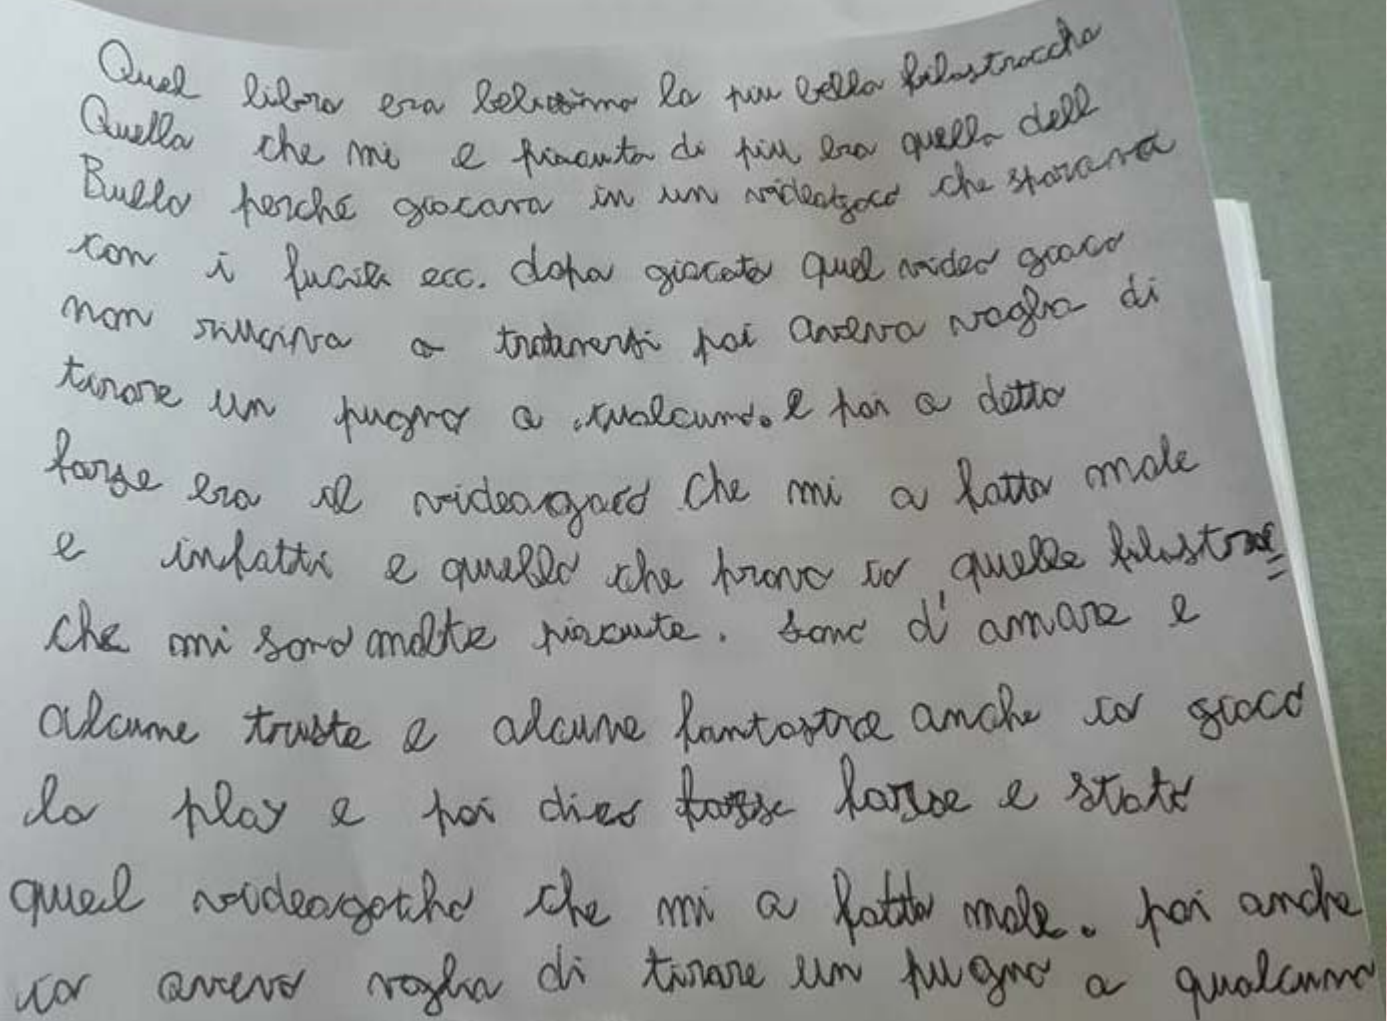 Quel libro era belissimo la piu bella filastroccha
Quella che mi e piacuta di più era quella dell
Bullo perché giocava in un videogoco che sparava
con i fucili ecc. dopo giocato quel video gioco
non riuciva a tratenersi poi aveva voglia di
tirare un pugno a qualcuno. e poi a detto
forse era il videogoco che mi a fatto male
e infatti e quello che provo io, quelle filastroce
che mi sono molte piacute. sono d'amore e
alcune triste e alcune fantastice anche io gioco
la play e poi dico forse e stato
quel videogocho che mi a fatto male. poi anche
io avevo voglia di tirare un pugno a qualcuno